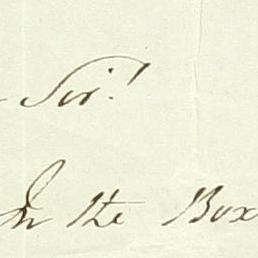 Sir!
In the Box